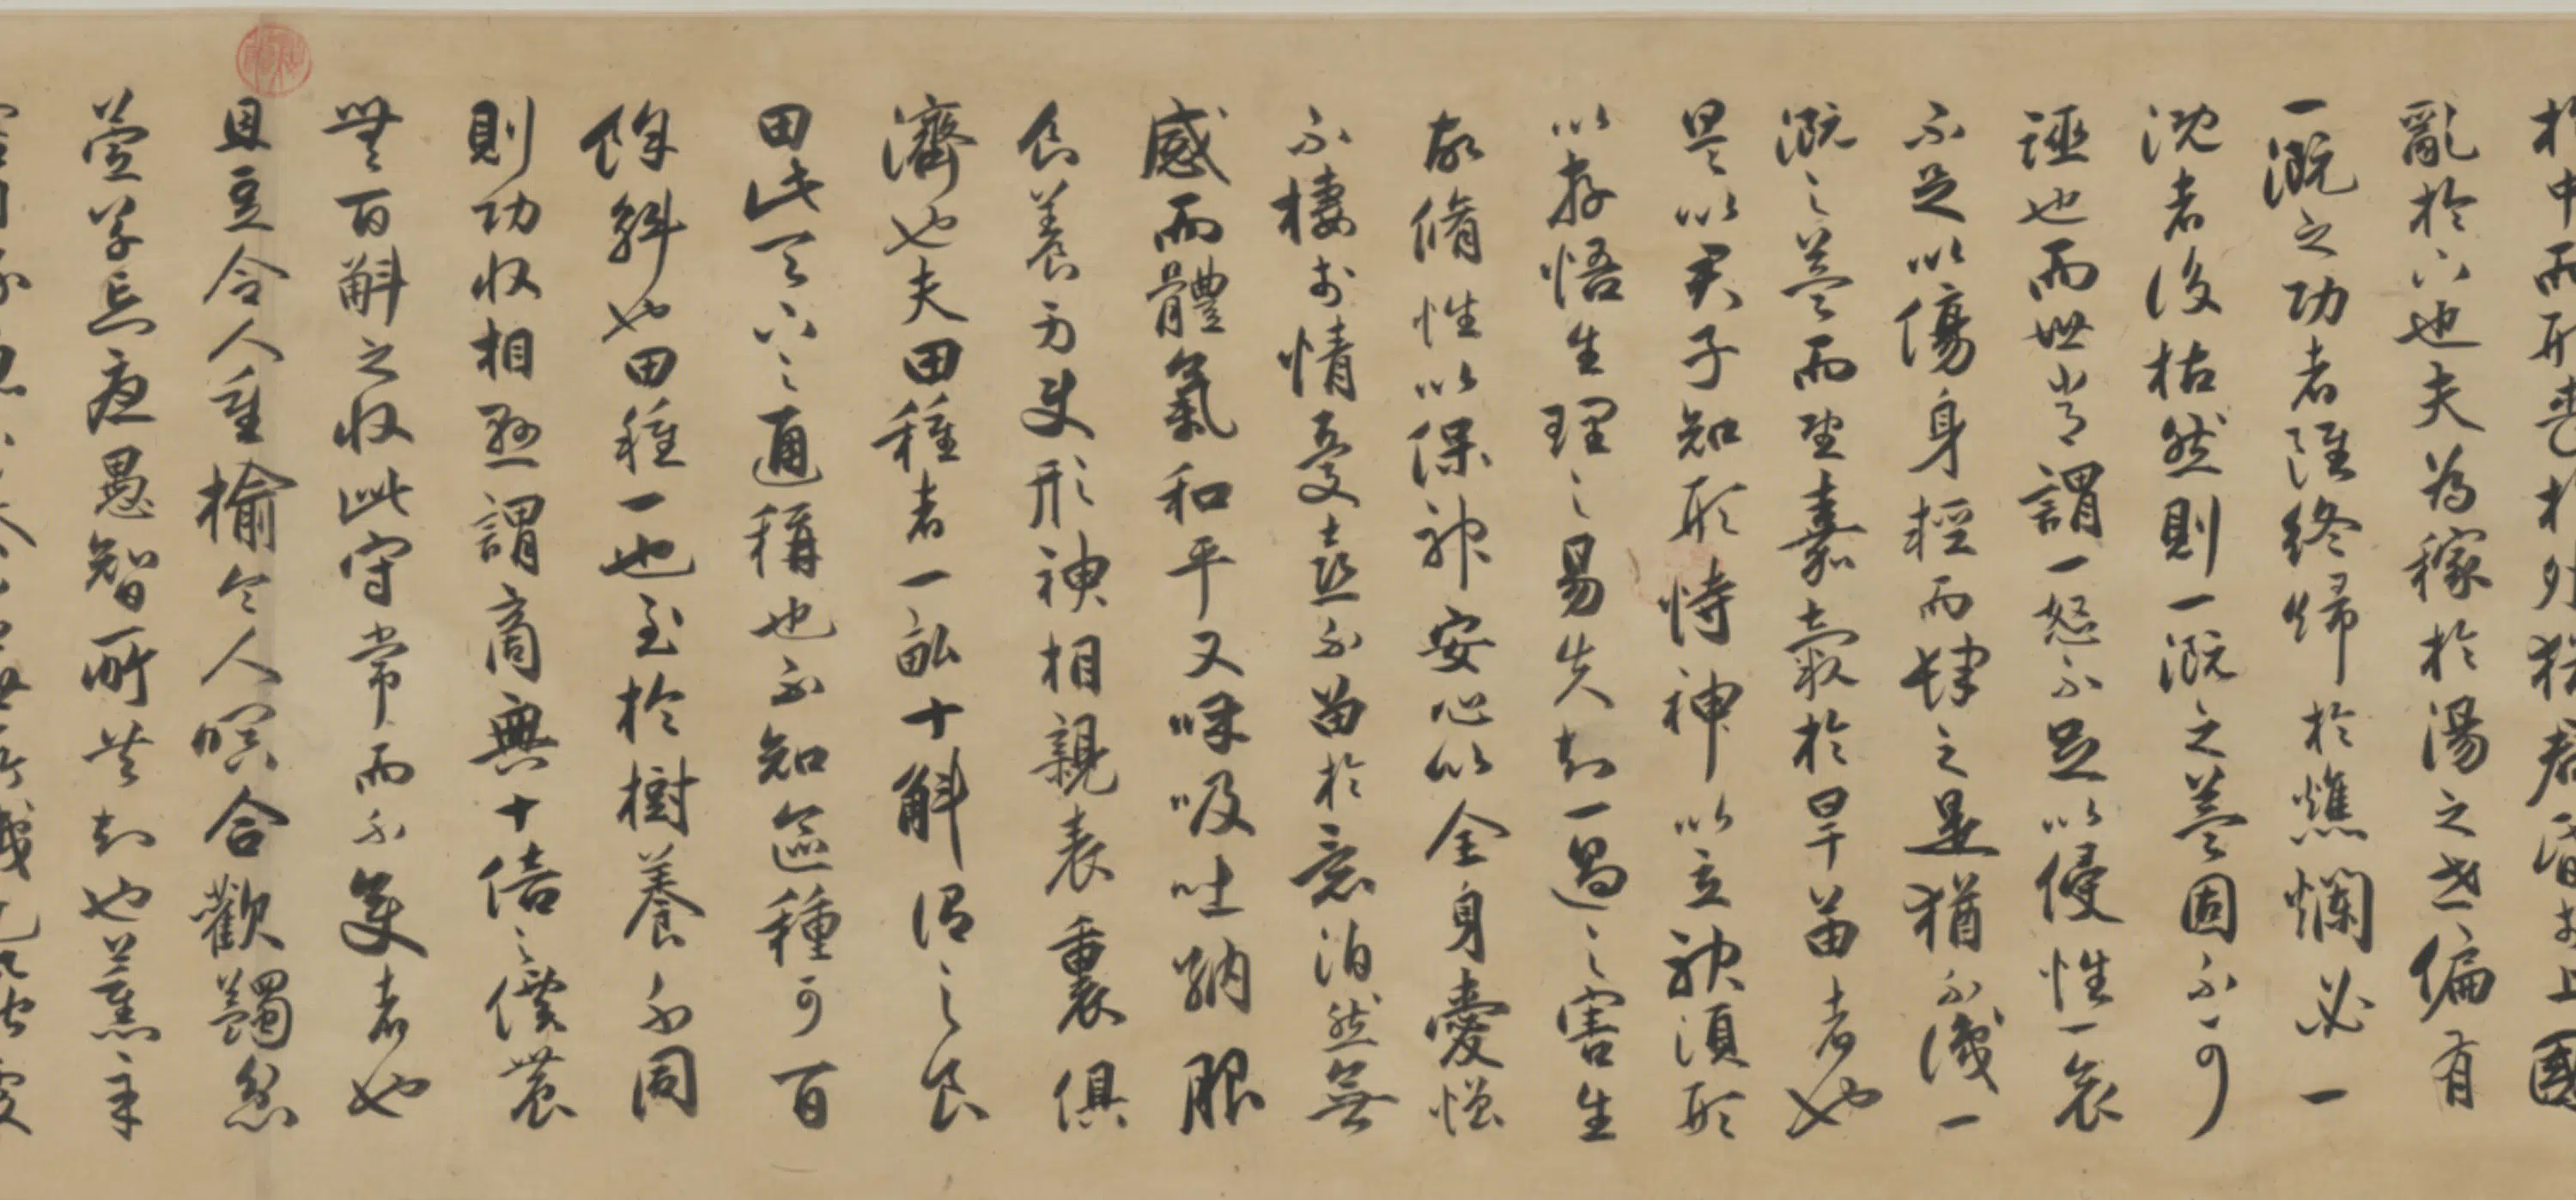 於中而形喪於外猶君昏於上國
亂於下也夫為稼於湯之世偏有
一溉之功者雖終歸於燋爛必一
溉者後枯然則一溉之益固不可
誣也而世常謂一怒不足以侵性一哀
不足以傷身輕而肆之是猶不識一
溉之益而望嘉穀於旱苗者也
是以君子知形恃神以立神須形
以存悟生理之易失知一過之害生
故脩性以保神安心以全身愛憎
不棲於情憂喜不留於意泊然無
感而體氣和平又呼吸吐納服
食養身使形神相親表裏俱
濟也夫田種者一畝十斛謂之良
田此天下之通稱也不知區種可百
餘斛也田種一也至於樹養不同
則功收相懸謂商無十倍之價農
無百斛之收此守常而不變者也
且豆令人重榆令人瞑合歡蠲忿
萱草忘憂愚智所共知也薰辛